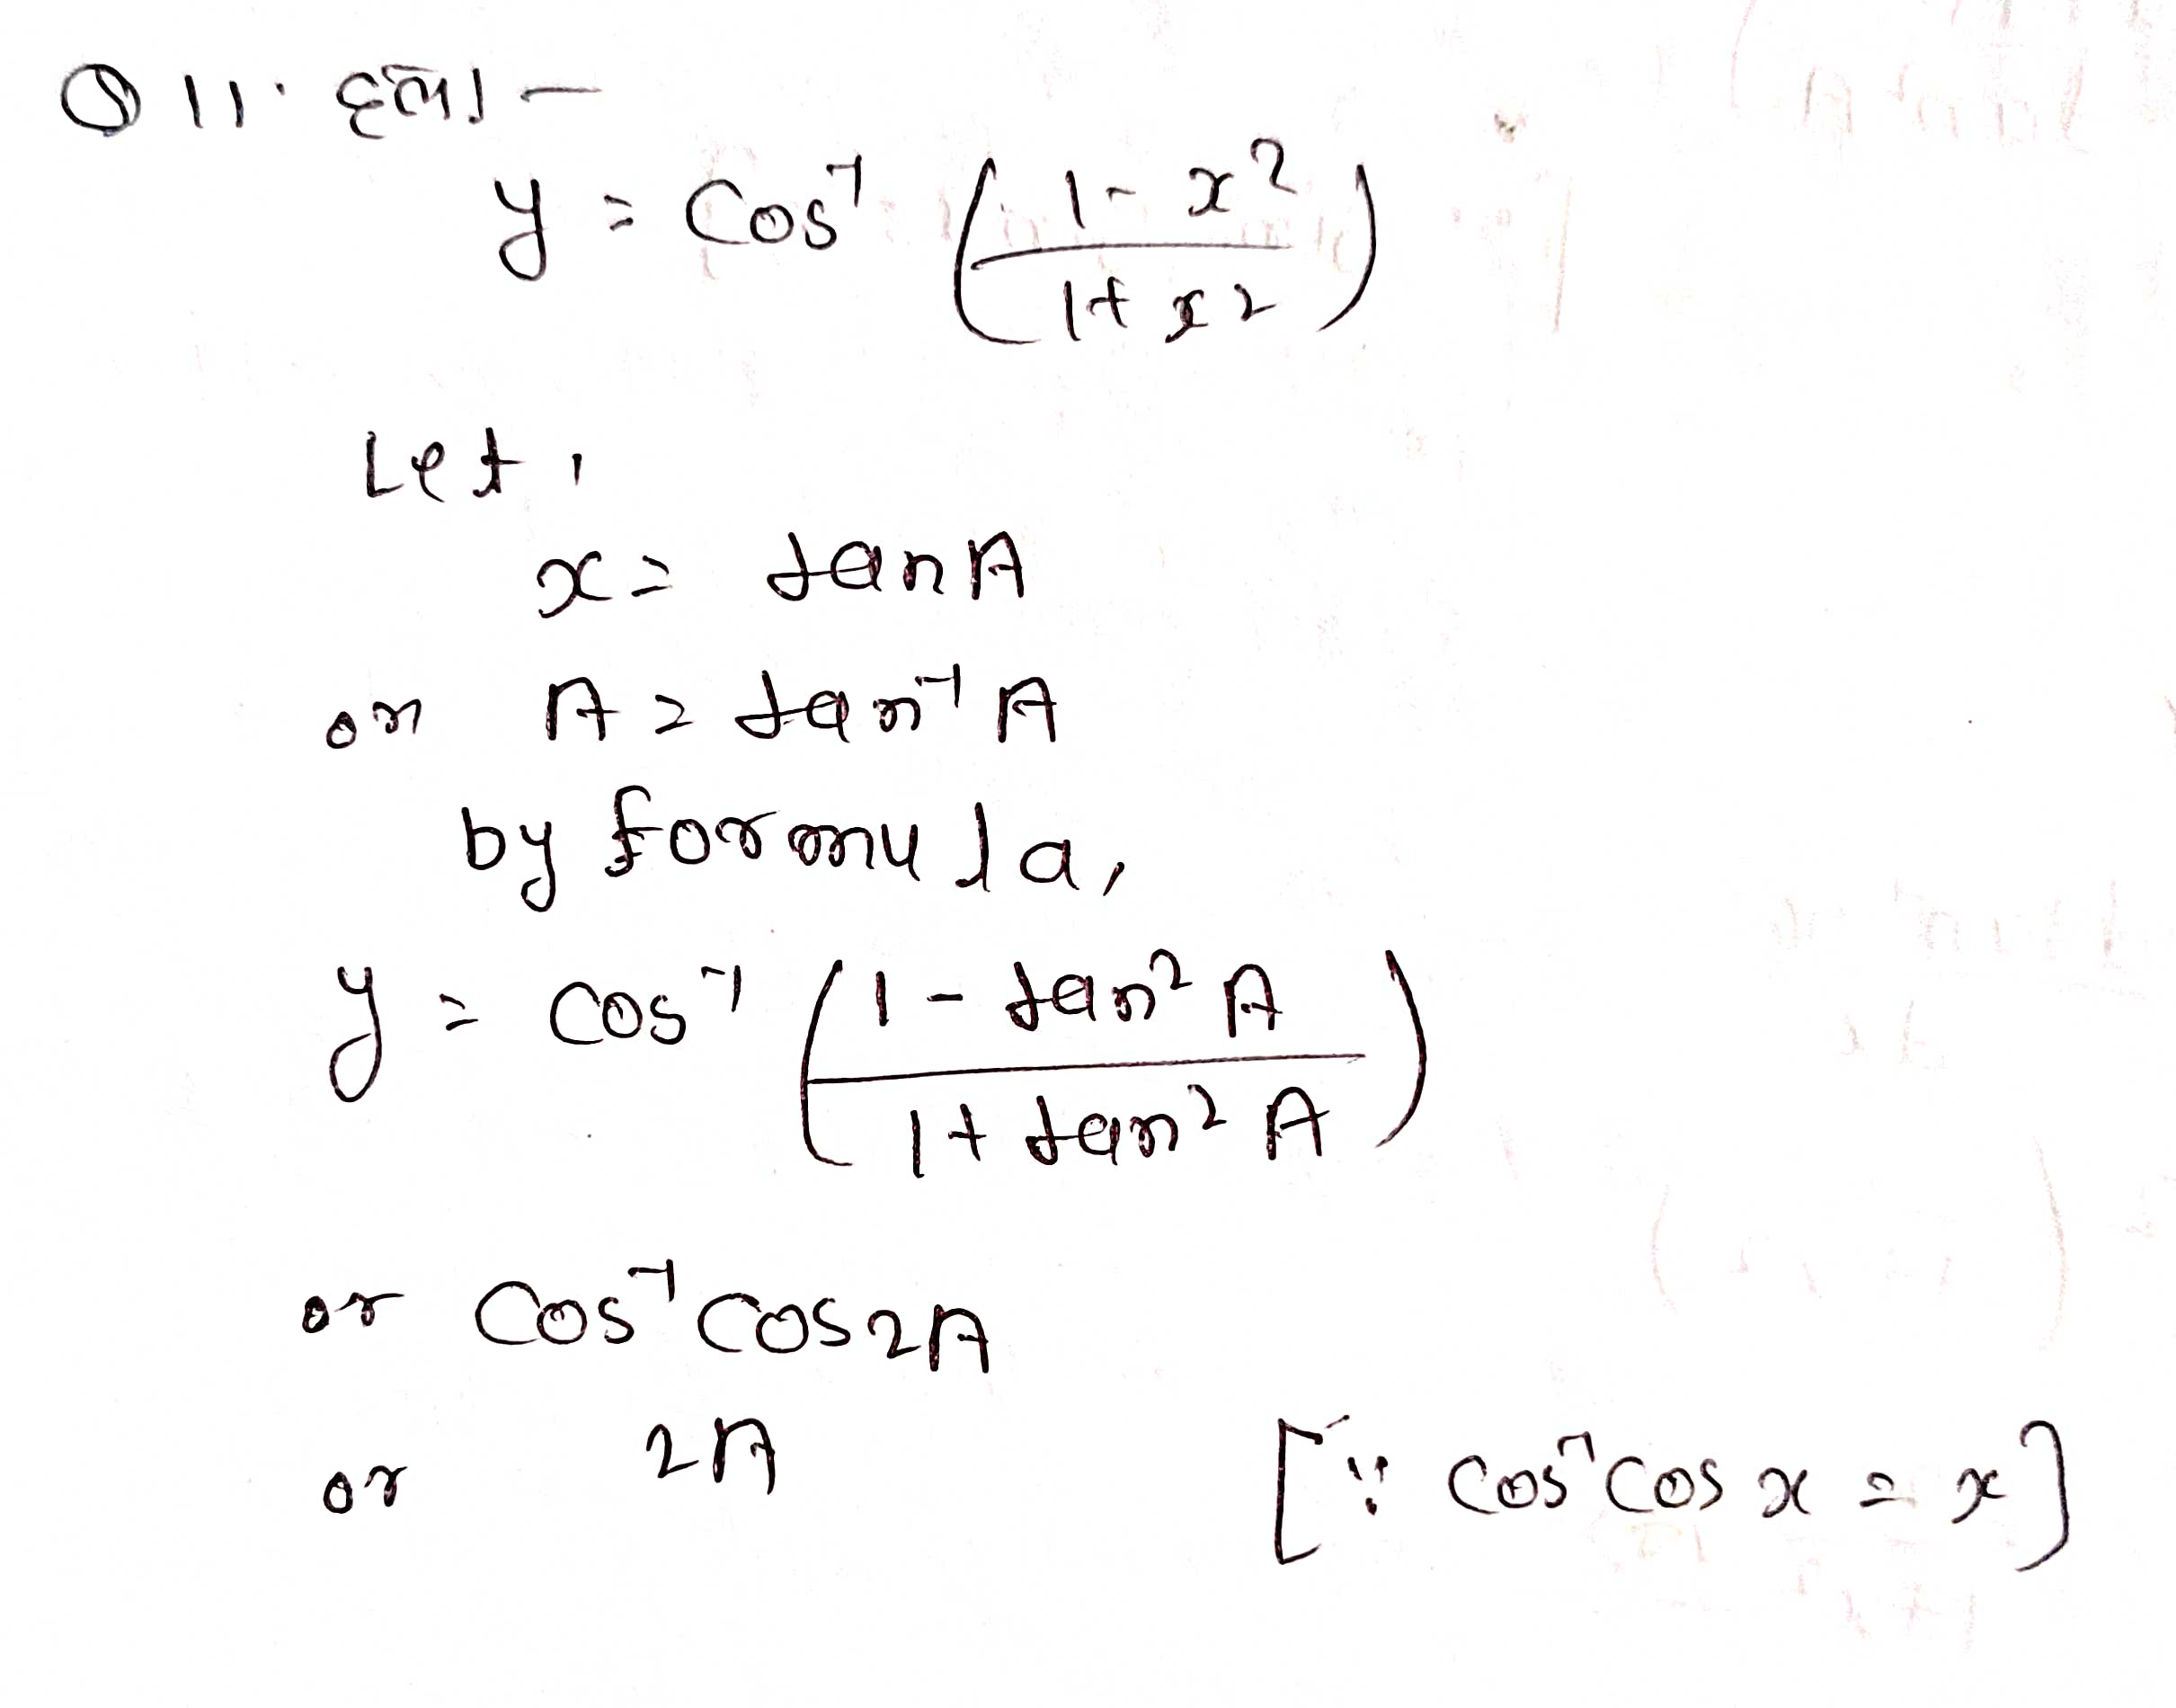 Q 11. हल।-
y = Cos⁻¹ (1 - x² / 1 + x²)
Let,
x = tan A
or A = tan⁻¹ A
by formula,
y = cos⁻¹ (1 - tan² A / 1 + tan² A)
or Cos⁻¹ cos 2A
or 2A [∵ Cos⁻¹ cos x = x]